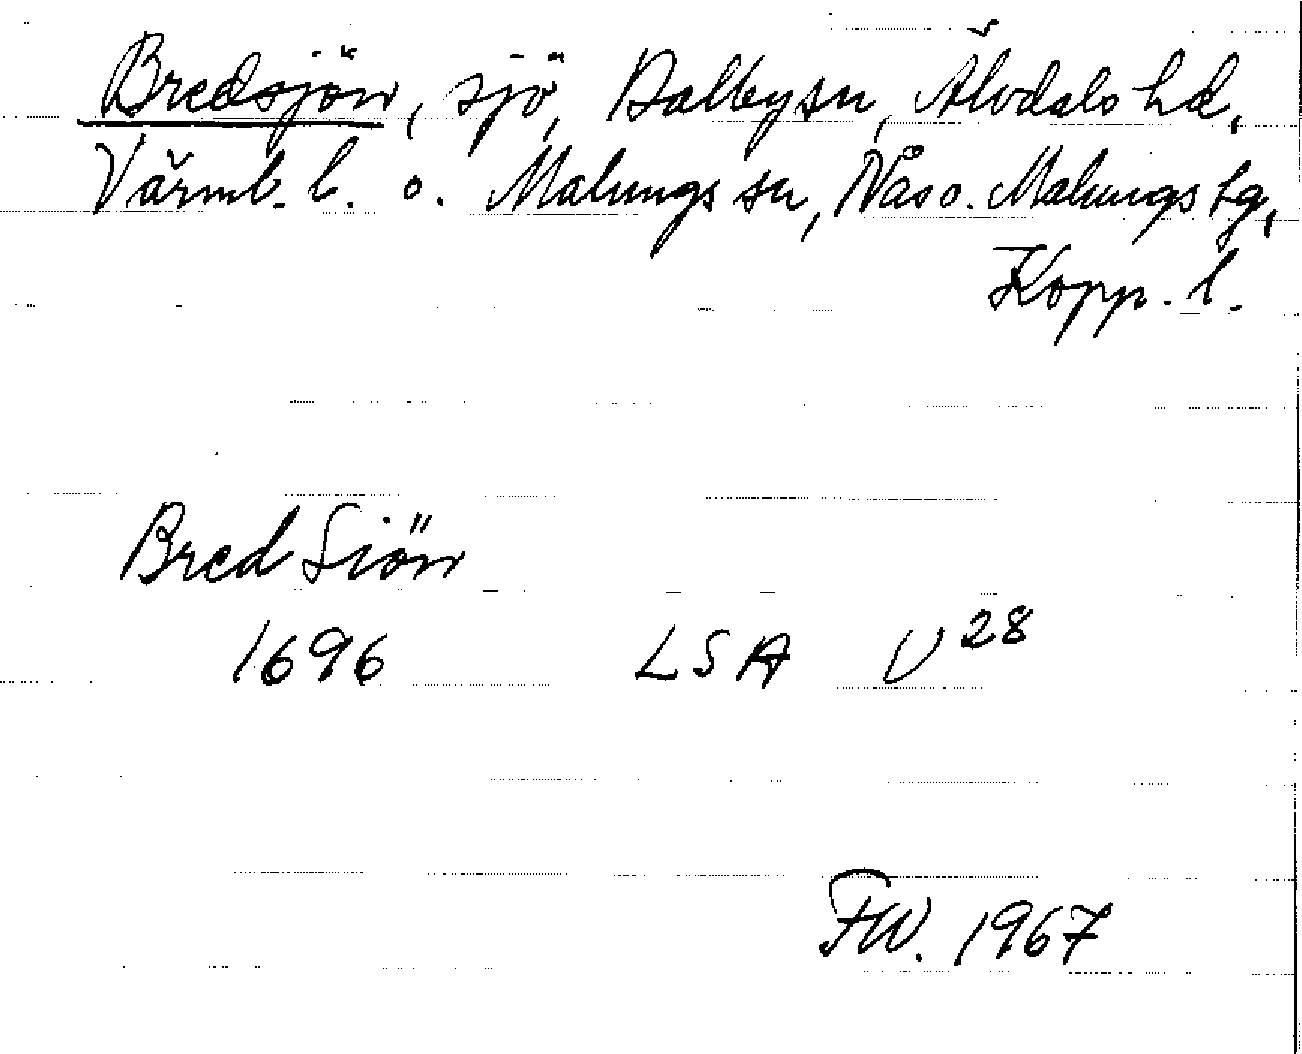 Bredsjön, sjö, Dalby sn, Älvdals hd,
Värml. l. o. Malungs sn, Nås o. Malungs tg,
Kopp. l.
Bred Siön
1696 LSA U 28
FW. 1967